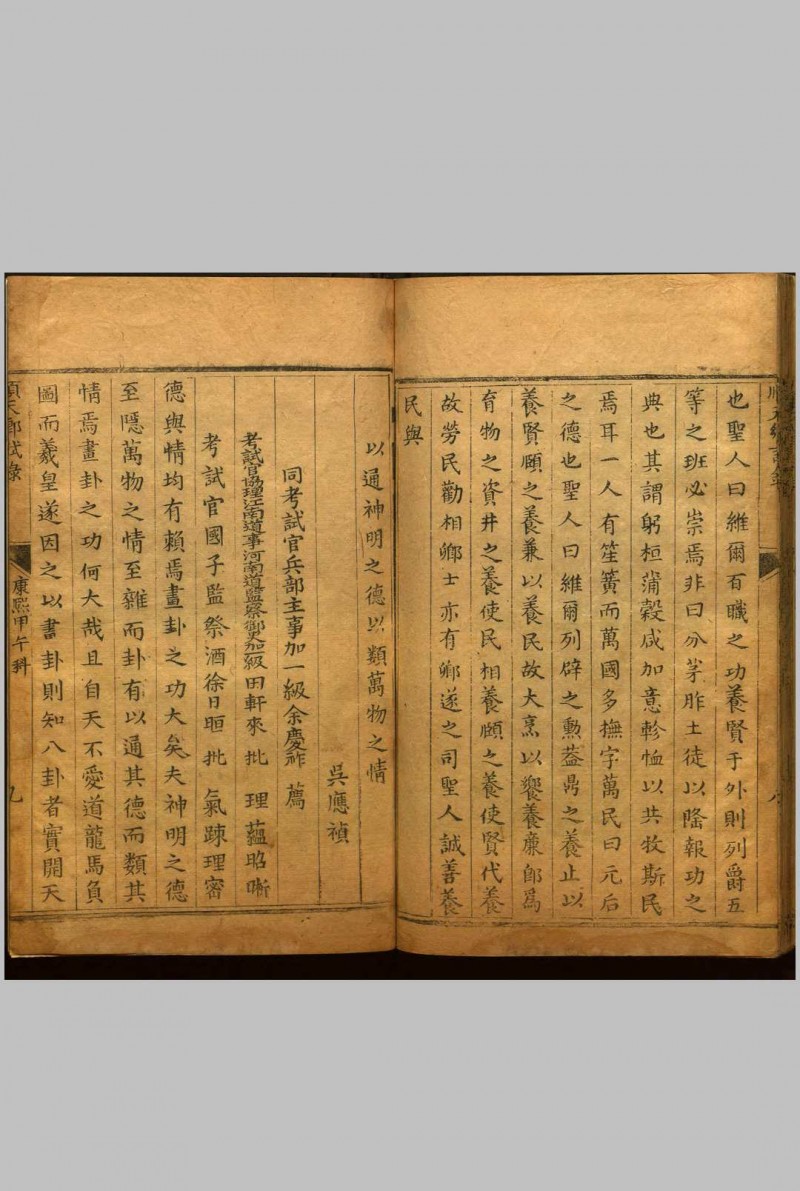 也聖人曰維爾百職之功養賢于外則列爵五
等之班必崇焉非曰分茅胙土徒以隆報功之
典也其謂躬桓蒲穀咸加意軫恤以共牧斯民
焉耳一人有笙簧而萬國多撫字萬民曰元后
之德也聖人曰維爾列辟之勲葢鼎之養止以
養賢頤之養兼以養民故大烹以饗養廉即爲
育物之資井之養使民相養頤之養使賢代養
故勞民勸相鄉士亦有鄉遂之司聖人誠善養
民與
以通神明之德以類萬物之情
吳應禎
同考試官兵部主事加一級余慶祚 薦
考試官協理江南道事河南道監察御史加一級田軒來 批 理蘊昭晰
考試官國子監祭酒徐日晅 批 氣疎理密
德與情均有賴焉畫卦之功大矣夫神明之德
至隱萬物之情至雜而卦有以通其德而類其
情焉畫卦之功何大哉且自天不愛道龍馬負
圖而羲皇遂因之以書卦則知八卦者實開天
順天鄉試錄
康熙甲午科
九